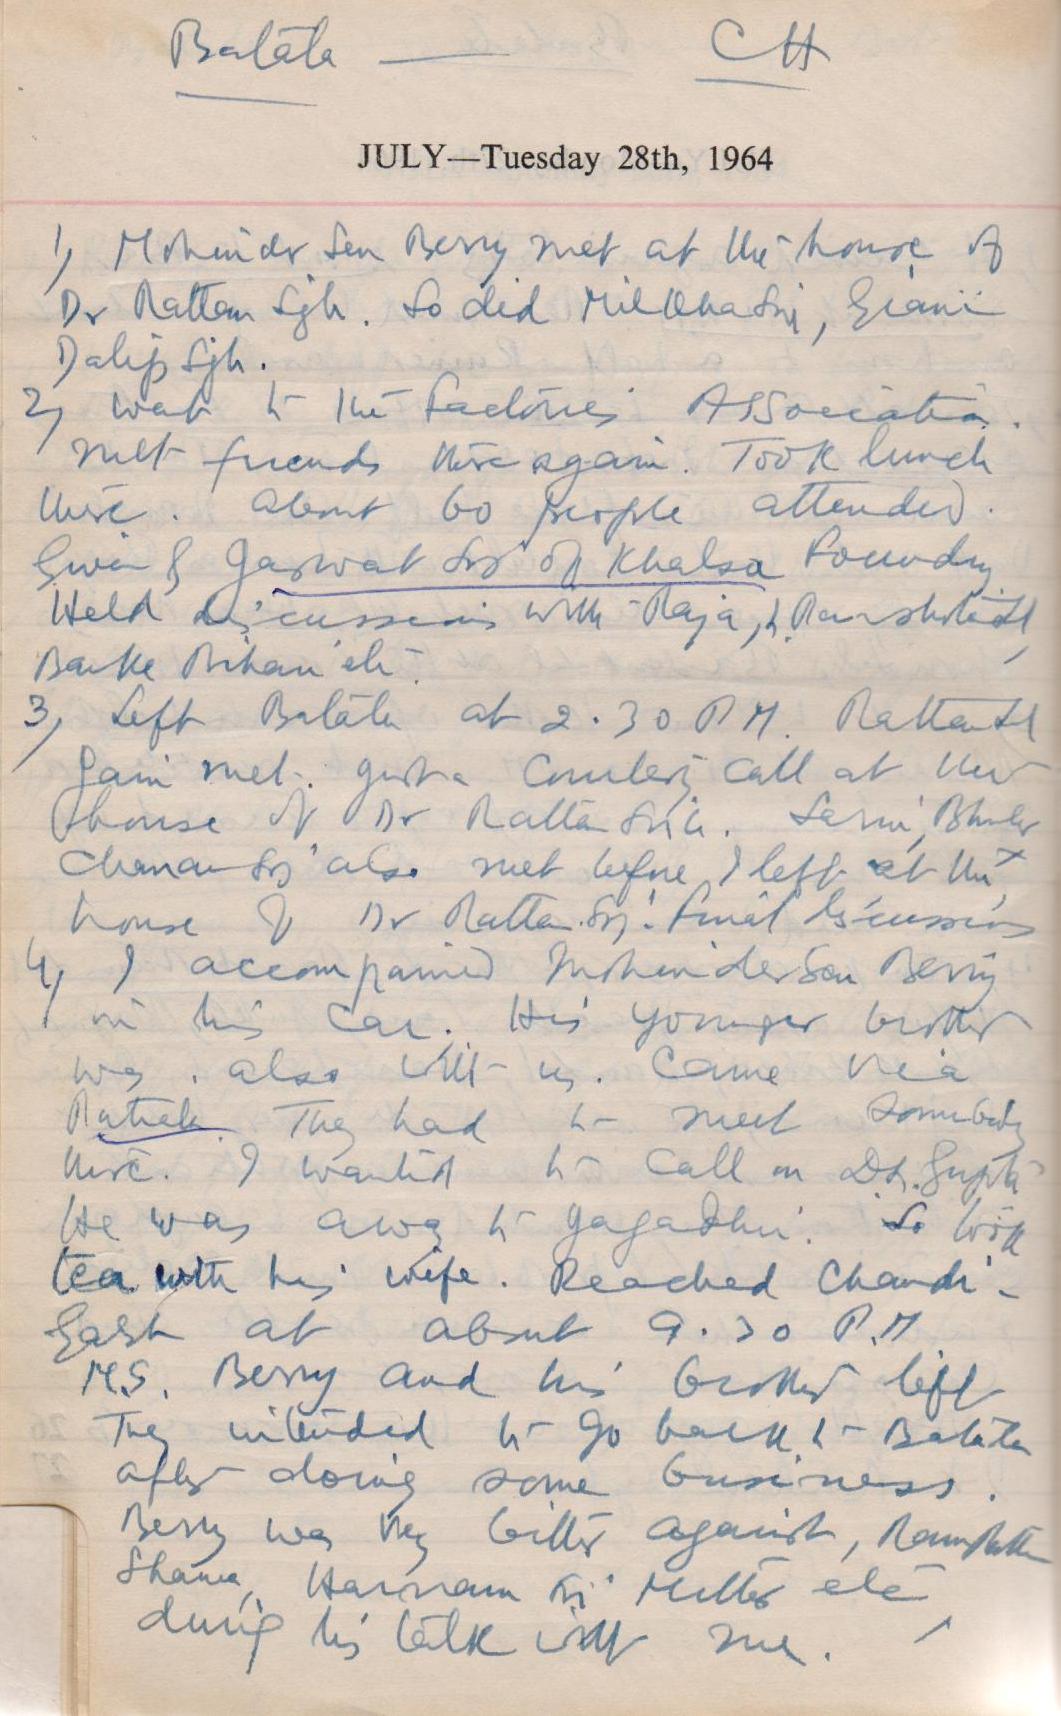 Batala — CH
JULY—Tuesday 28th, 1964
1, Mohinder Sen Berry met at the house of
Dr Rattan Sgh. So did Milkha Sri, Giani
Dalip Sgh.
2, Went to the Factories Association.
met friends there again. Took lunch
there. about 60 people attended.
Given by Jaswat Sri of Khalsa Foundry
Held discussions with Raja,
Banke Bihari etc.
3, Left Batala at 2.30 P.M. Rattan
met. Just a Courtesy call at the
house of Dr Rattan Sri.
Chanan Sri also met before I left at the
house of Dr Rattan Sri. Final discussions
4, I accompanied Mohinder Sen Berry
in his car. His younger brother
was. also with us. Came via
They had to meet somebody
there. I wanted to call on Dr. Gupta
He was away to Jagadhri. So took
tea with his wife. Reached Chandi-
garh at about 9.30 P.M
M.S. Berry and his brother left
They intended to go back to Batala
after doing some business.
Berry was very bitter against, Ram Rattan
Sharma, Harnam Sri etc
during his talk with me.